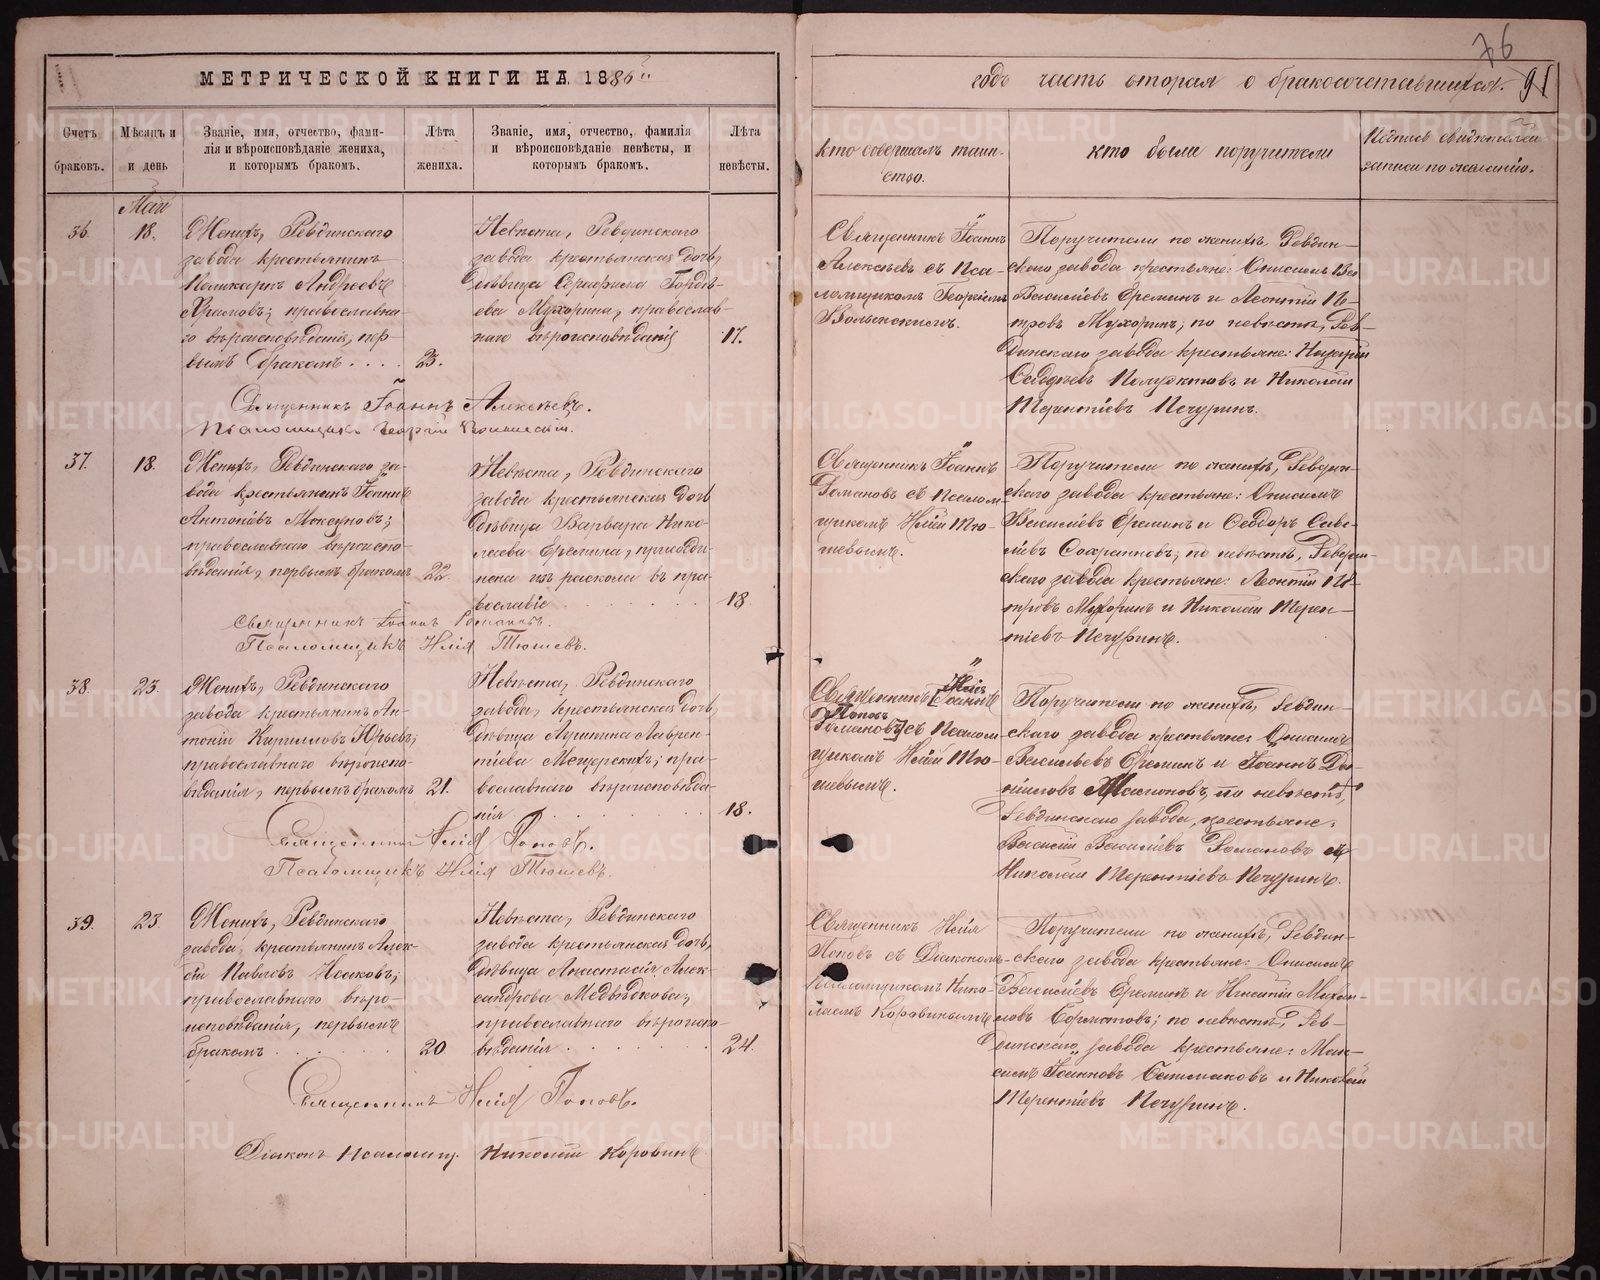 МЕТРИЧЕСКОЙ КНИГИ НА 1886
годъ часть вторая о бракосочетавшихся.
76
91
Счетъ браковъ.
Мѣсяцъ и день
Званіе, имя, отчество, фами-
лія и вѣроисповѣданіе жениха,
и которымъ бракомъ.
Лѣта
жениха.
Званіе, имя, отчество, фамилія
и вѣроисповѣданіе невѣсты, и
которымъ бракомъ.
Лѣта
невѣсты.
Кто совершалъ таин-
ство.
кто были поручители
Подпись свидѣтелей
записи по желанію.
36.
Май
18.
Женихъ, Ревдинскаго
завода крестьянинъ
Поликарпъ Андреевъ
Храмовъ; православна-
го вѣроисповѣданія, пер-
вымъ бракомъ....
23.
Невѣста, Ревдинскаго
завода крестьянская дочь,
дѣвица Серафима Гордѣ-
ева Мухорина, православ-
наго вѣроисповѣданія
17.
Священникъ Іоаннъ
Алексѣевъ съ Пса-
ломщикомъ Георгіемъ
Волынскимъ.
Поручители по женихѣ, Ревдин-
скаго завода крестьяне: Онисимъ Ва-
Васильевъ Ереминъ и Леонтій Пе-
тровъ Мухоринъ; по невѣстѣ, Рев-
динскаго завода крестьяне:
Николай
Терентіевъ Печуринъ.
Священникъ Іоаннъ Алексѣевъ.
Псаломщикъ Георгій Волынскій.
37.
18.
Женихъ, Ревдинскаго за-
вода крестьянинъ Іоаннъ
Антоніевъ Мокеуновъ;
православнаго вѣроиспо-
вѣданія, первымъ бракомъ
22.
Невѣста, Ревдинскаго
завода крестьянская дочь
дѣвица Варвара Нико-
лаева Еремина, присоеди-
нена изъ раскола въ пра-
вославіе
18
Священникъ Іоаннъ
Романовъ съ Псалом-
щикомъ Иліей Тю-
шевымъ.
Поручители по женихѣ, Ревдин-
скаго завода крестьяне: Онисимъ
Васильевъ Ереминъ и Ѳеодоръ Саве-
ліевъ; по невѣстѣ, Ревдин-
скаго завода крестьяне: Леонтій Пе-
тровъ Мухоринъ и Николай Терен-
тіевъ Печуринъ.
Священникъ Іоаннъ Романовъ.
Псаломщикъ Илія Тюшевъ.
38.
23.
Женихъ, Ревдинскаго
завода крестьянинъ Ан-
тоній Кирилловъ Юрьевъ,
православнаго вѣроиспо-
вѣданія, первымъ бракомъ
21.
Невѣста, Ревдинскаго
завода, крестьянская дочь,
дѣвица Лаврен-
тіева Мещерскихъ; пра-
вославнаго вѣроисповѣда-
нія
18.
Священникъ Іоаннъ Илія
Поповъ
Романовъ съ Псалом-
щикомъ Иліей Тю-
шевымъ.
Поручители по женихѣ, Ревдин-
скаго завода крестьяне: Онисимъ
Васильевъ Ереминъ и Іоаннъ Да-
ниловъ, по невѣстѣ,
Ревдинскаго завода, крестьяне:
Василій Васильевъ Романовъ и
Николай Терентіевъ Печуринъ.
Священникъ Илія Поповъ.
Псаломщикъ Илія Тюшевъ.
39.
23.
Женихъ, Ревдинскаго
завода, крестьянинъ Алек-
сій Павловъ Исаковъ;
православнаго вѣро-
исповѣданія, первымъ
бракомъ
20
Невѣста, Ревдинскаго
завода крестьянская дочь,
дѣвица Анастасія Алек-
сандрова Медвѣдкова;
православнаго вѣроиспо-
вѣданія
24.
Священникъ Илія
Поповъ съ Діакономъ-
Псаломщикомъ Нико-
лаемъ Коровинымъ
Поручители по женихѣ, Ревдин-
скаго завода крестьяне: Онисимъ
Васильевъ Ереминъ и Михаи-
ловъ; по невѣстѣ, Рев-
динскаго завода крестьяне: Мак-
симъ Іоанновъ и Николай
Терентіевъ Печуринъ.
Священникъ Илія Поповъ.
Діаконъ Псаломщ. Николай Коровинъ
METRIKI.GASO-URAL.RU